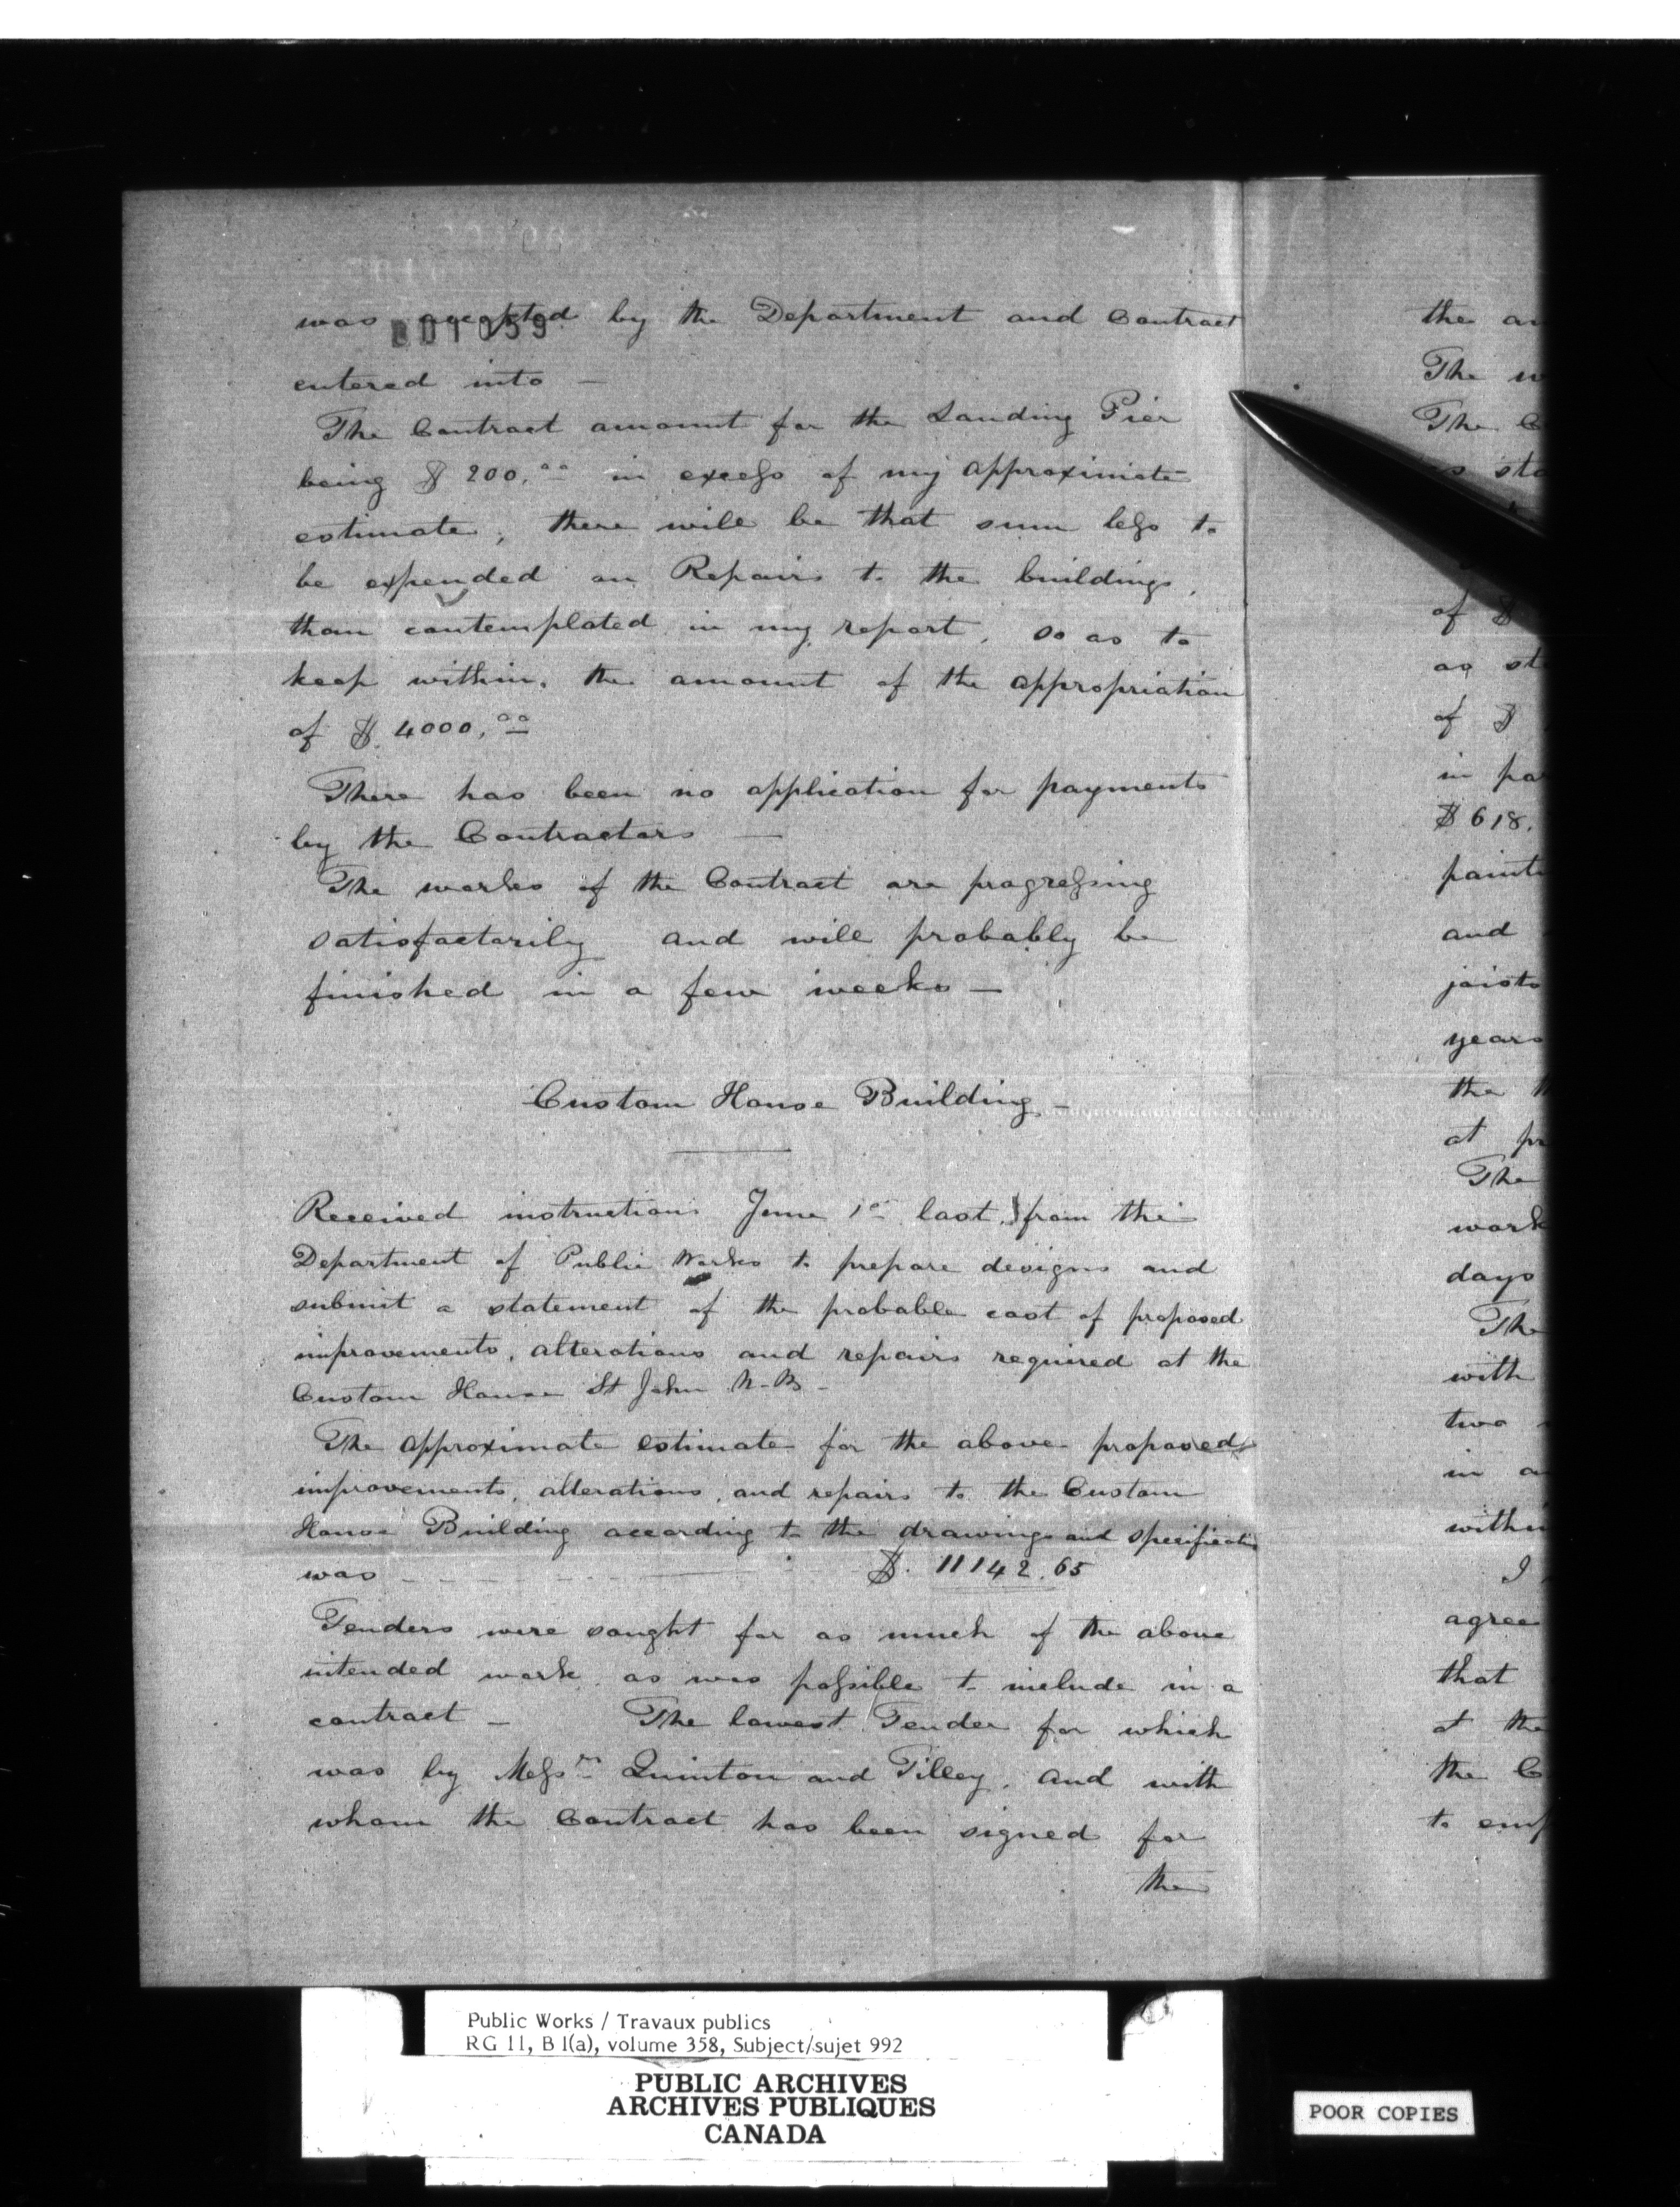 was accepted by the Department and Contract
001059
entered into —
The Contract amount for the Landing Pier
being $ 200.00 in excess of my approximate
estimate, there will be that sum less to
be expended on Repairs to the buildings,
than contemplated in my report, so as to
keep within, the amount of the appropriation
of $ 4000.00
There has been no application for payments
by the Contractors —
The works of the Contract are progressing
satisfactorily and will probably be
finished in a few weeks —
Custom House Building —
Received instructions June 1st last, from the
Department of Public Works to prepare designs and
submit a statement of the probable cost of proposed
improvements, alterations and repairs required at the
Custom House St John N.B —
The approximate estimate for the above proposed
improvements, alterations, and repairs to the Custom
House Building according to the drawings and specification
was — — — $. 11142.65
Tenders were sought for as much of the above
intended work as was possible to include in a
contract — The lowest Tender for which
was by Messrs Quinton and Tilley, and with
whom the Contract has been signed for
the
the
The
The
of $
as
of $
in
$ 618.
and
joists
years
the
at
The
work
days
The
with
two
in
within
I
agree
that
at the
the
to
Public Works / Travaux publics
RG 11, B 1(a), volume 358, Subject/sujet 992
PUBLIC ARCHIVES
ARCHIVES PUBLIQUES
CANADA
POOR COPIES